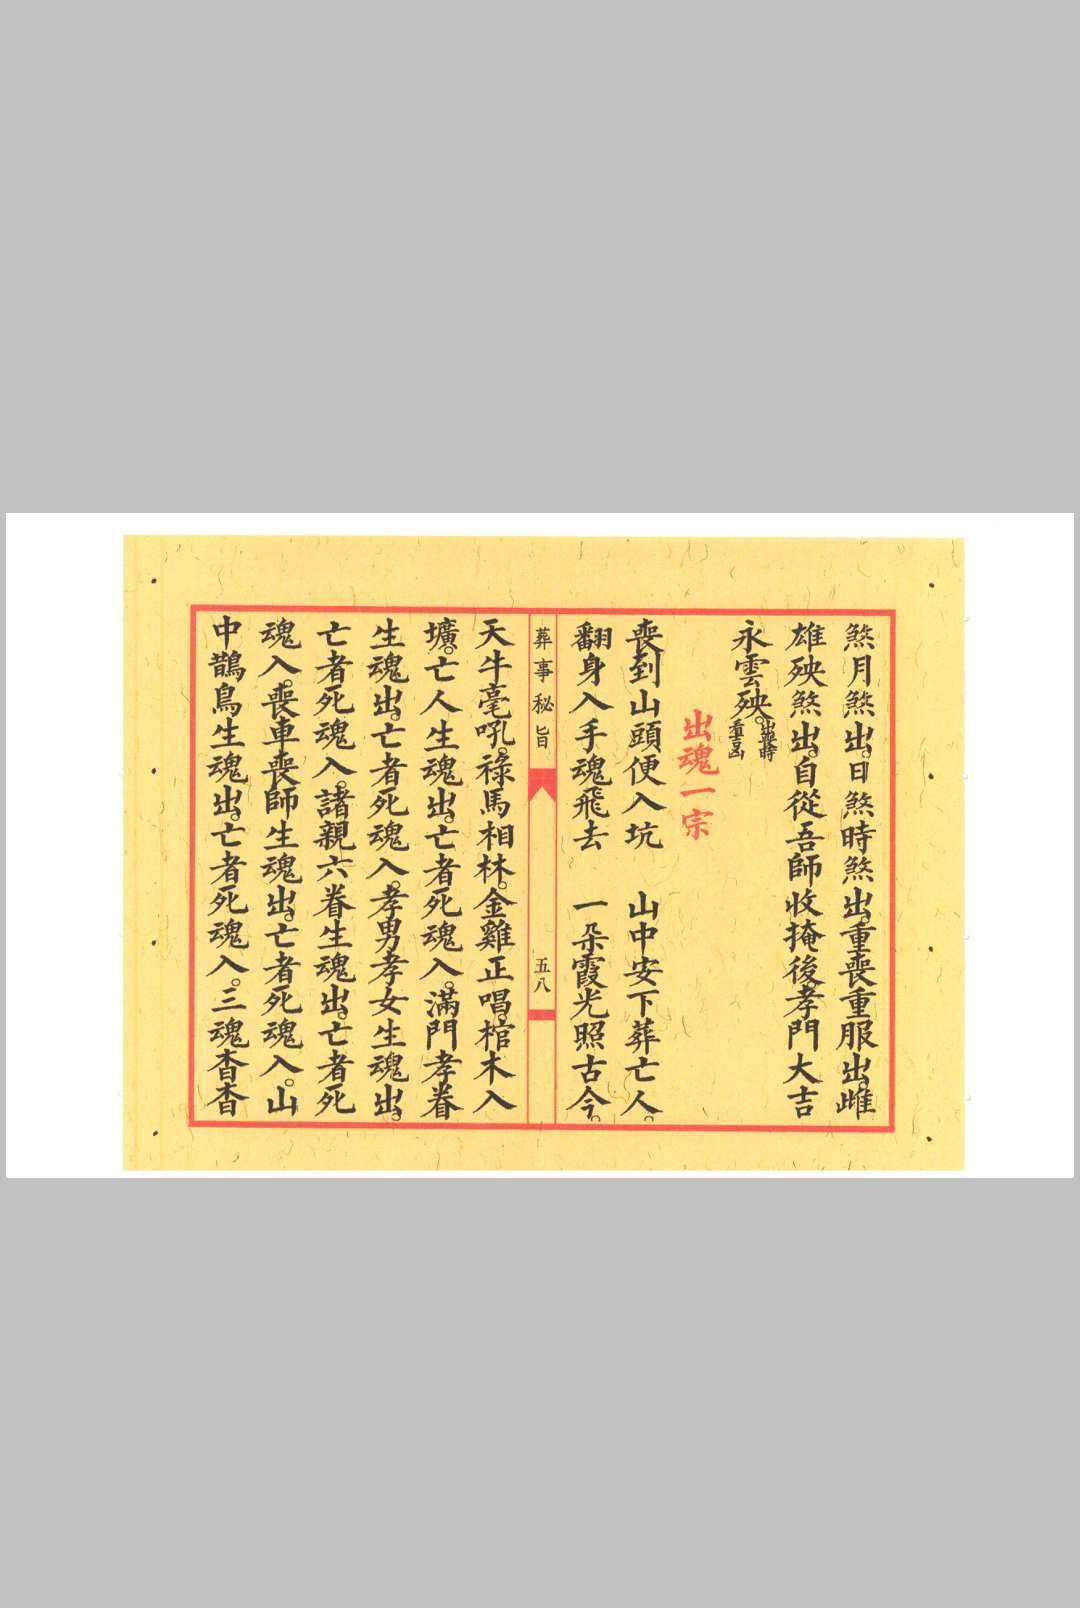 煞月煞出。日煞時煞出。重喪重服出。雌
雄殃煞出。自從吾師收掩後。孝門大吉
永雲殃。出喪時看吉凶
出魂一宗
喪到山頭便入坑 山中安下葬亡人。
翻身入手魂飛去 一朵霞光照古今。
葬事秘旨 五八
天牛毫吼。祿馬相林。金雞正唱。棺木入
壙。亡人生魂出。亡者死魂入。滿門孝眷
生魂出。亡者死魂入。孝男孝女生魂出。
亡者死魂入。諸親六眷生魂出。亡者死
魂入。喪車喪師生魂出。亡者死魂入。山
中鵲鳥生魂出。亡者死魂入。三魂杳杳